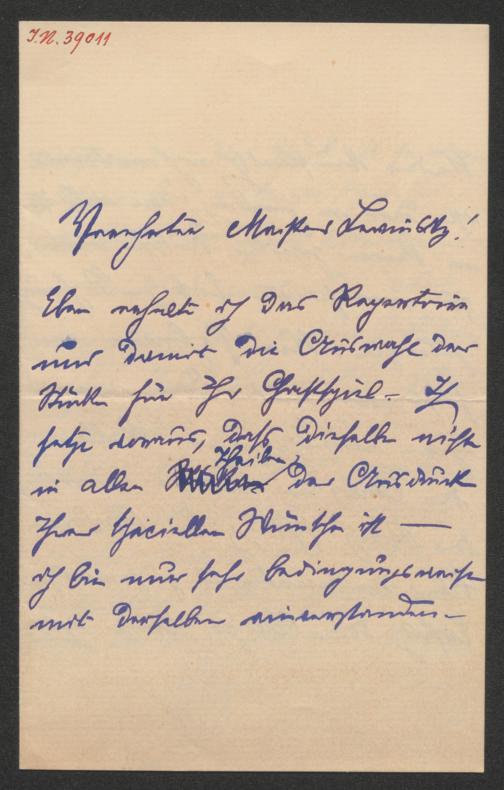 I.N. 39011
Verehrter Meister Lewinsky!
Eben erhalte ich das Repertoire
und damit die Auswahl der
Stücke für Ihr Gastspiel – Ich
setze voraus, daß dieselbe nicht
Theilen
in allen der Ausdruck
Ihrer speciellen Wünsche ist —
ich bin nur sehr bedingungsweise
mit derselben einverstanden –